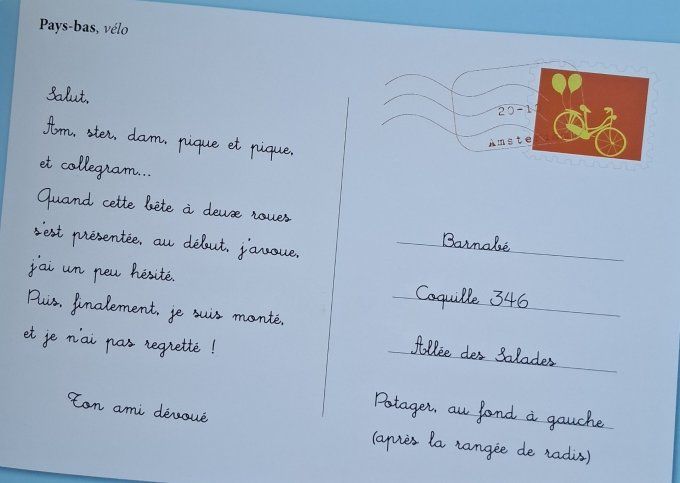 Pays-bas, vélo
Salut,
Am, ster, dam, pique et pique,
et collegram...
Quand cette bête à deux roues
s'est présentée, au début, j'avoue,
j'ai un peu hésité.
Puis, finalement, je suis monté,
et je n'ai pas regretté !
Ton ami dévoué
20-1
Amste
Barnabé
Coquille 346
Allée des Salades
Potager, au fond à gauche
(après la rangée de radis)